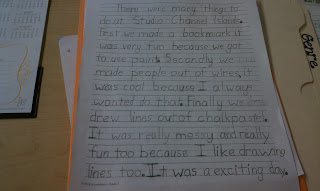 There were many things to
do at Studio Channel Islands.
First we made a bookmark it
was very fun because we got
to use paint. Secondly we
made people out of wires, it
was cool because I always
wanted do that. Finally we
drew lines out of chalkpastel.
It was really messy and really
fun too because I like drawing
lines too. It was a exciting day.
Genre